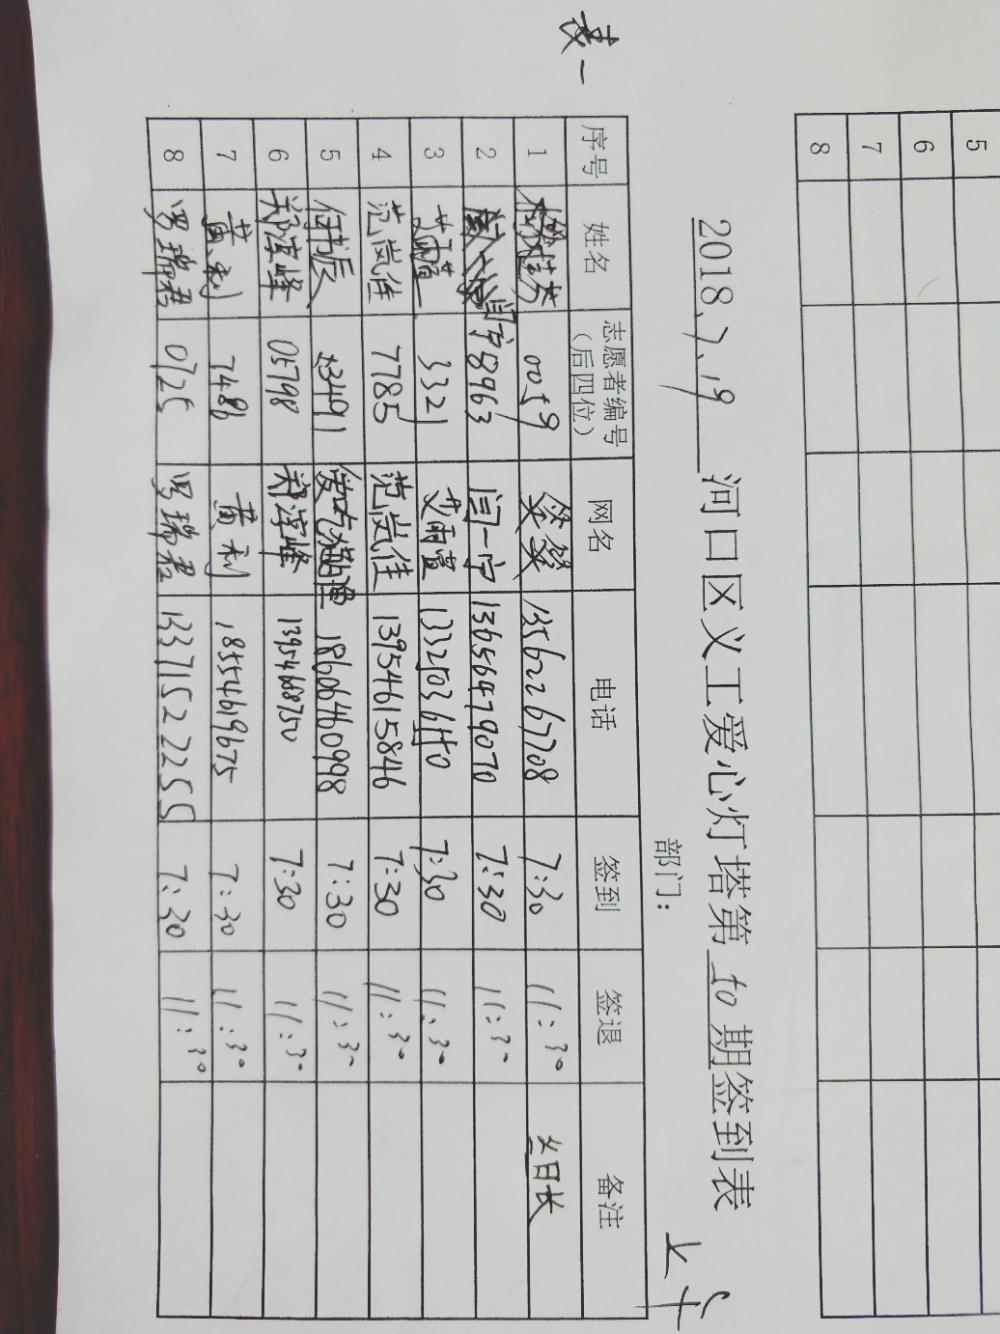 5
6
7
8
表一
2018.7.19 河口区义工爱心灯塔第 10 期签到表
部门： 上午
序号 姓名 志愿者编号（后四位） 网名 电话 签到 签退 备注
1 0059 签签 13562267708 7:30 11:30 义日长
2 闫一宁 8963 闫一宁 13656479070 7:30 11:30
3 艾雨萱 3321 艾雨萱 7:30 11:30
4 范岚佳 7785 范岚佳 13954615846 7:30 11:30
5 何书辰 3491 18606460998 7:30 11:30
6 郑淳峰 05798 郑淳峰 13954688750 7:30 11:30
7 黄利 7486 黄利 18554619675 7:30 11:30
8 罗瑞君 0725 罗瑞君 13371522255 7:30 11:30